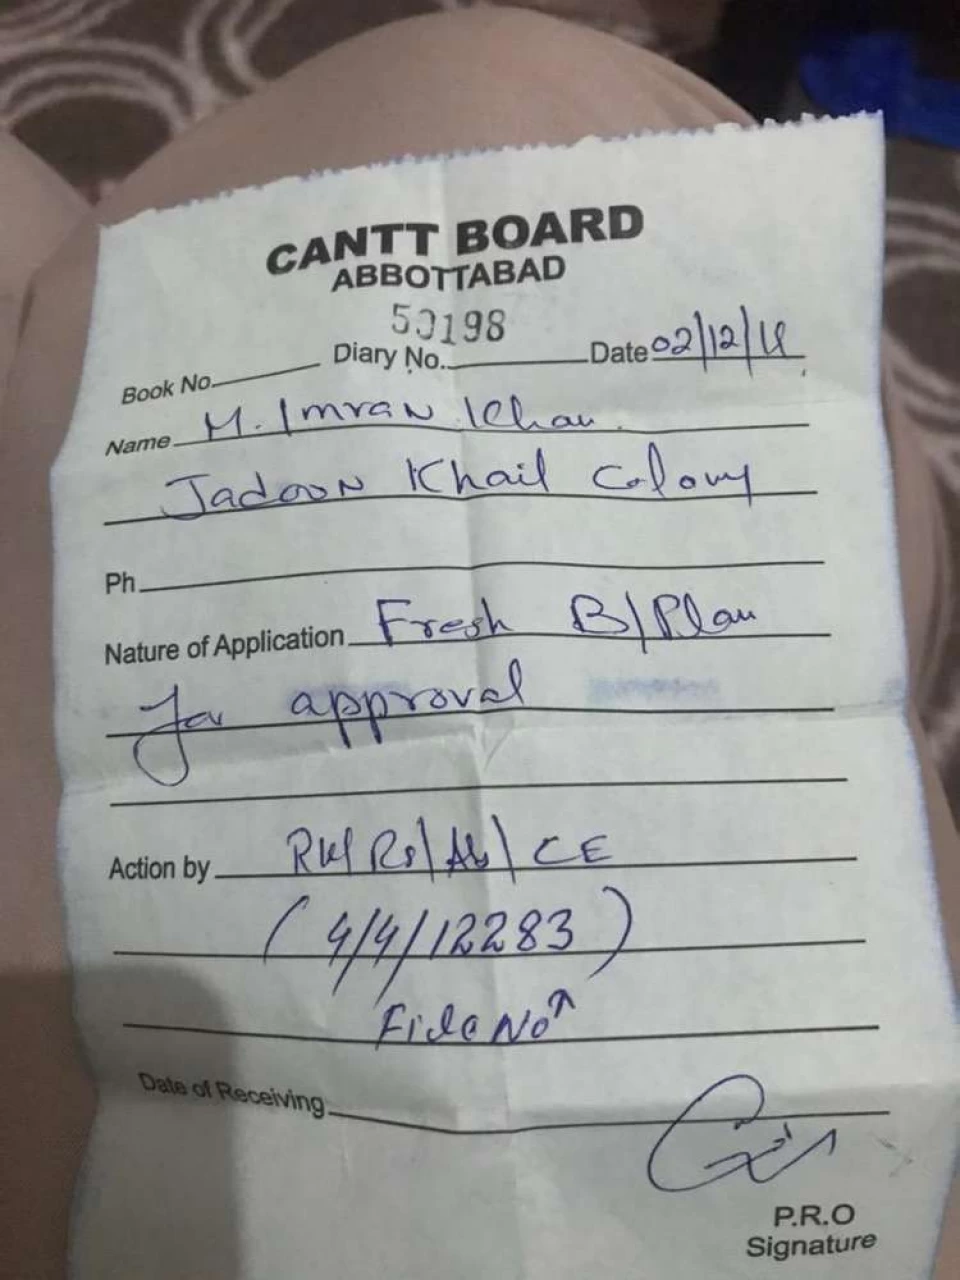 CANTT BOARD
ABBOTTABAD
50198
Book No. Diary No. Date 02/12/
Name M. Imran Khan
Jadoon Khail Colony
Ph
Nature of Application Fresh B/Plan
for approval
Action by CE
(4/4/12283)
File No↑
Date of Receiving
P.R.O
Signature